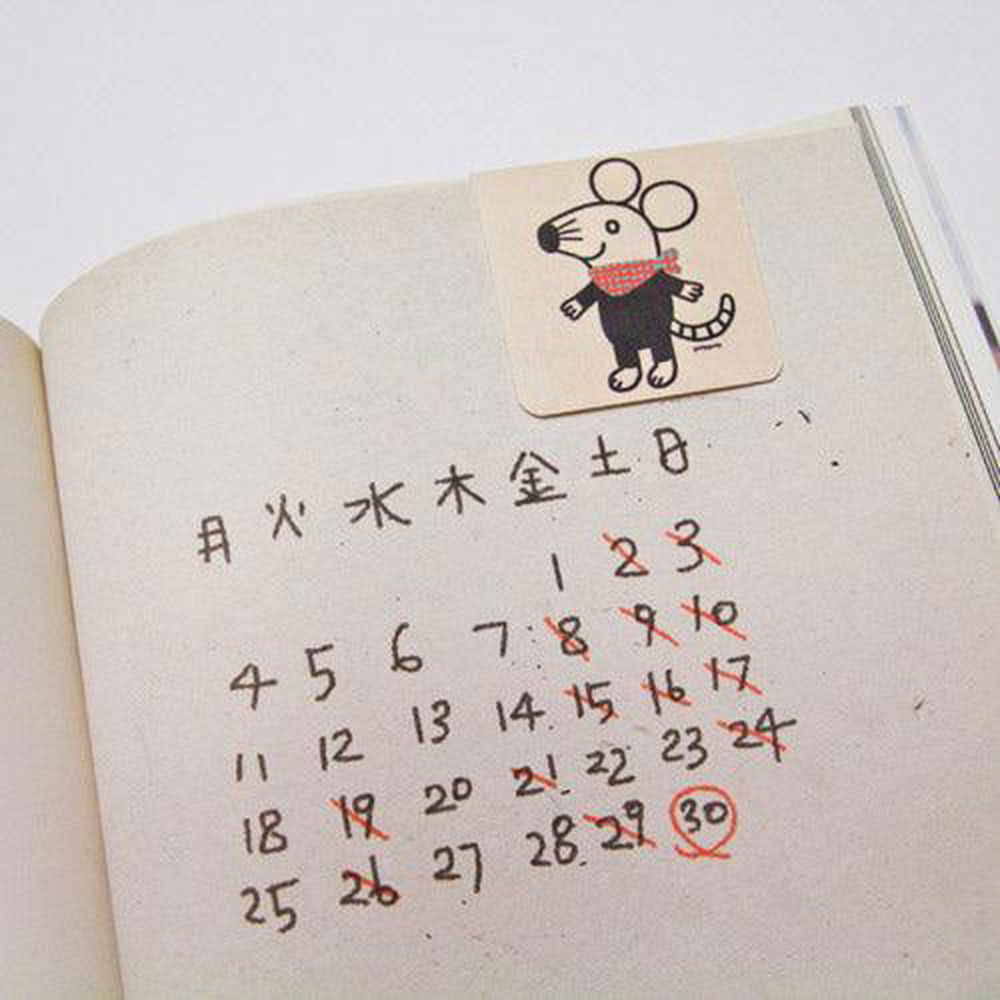 月 火 水 木 金 土 日
1 2 3
4 5 6 7 8 9 10
11 12 13 14 15 16 17
18 19 20 21 22 23 24
25 26 27 28 29 30